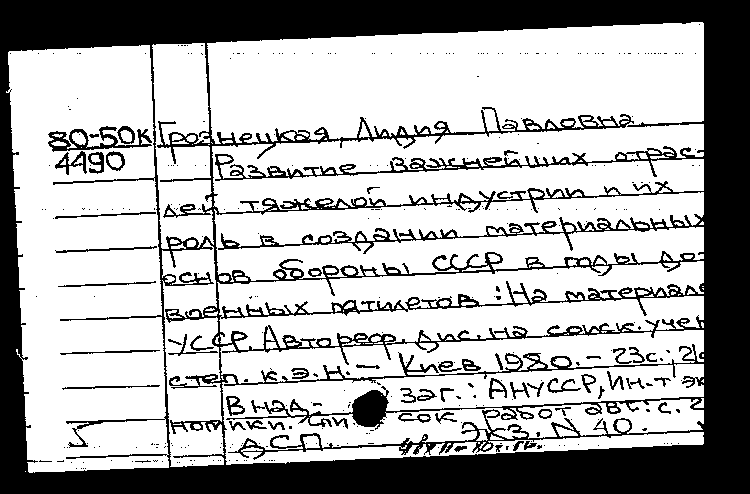 80-50к Грознецкая, Лидия Павловна.
4490 Развитие важнейших отрас-
лей тяжелой индустрии и их
роль в создании материальных
основ обороны СССР в годы до-
военных пятилеток : На материале
УССР. Автореф. дис. на соиск. учен
степ. к.э.н. – Киев, 1980. – 23с.; 21с
В над- заг.: АНУССР, Ин-т эк
номики. Спи сок работ авт.: с. 2
ДСП. Экз. N 40.